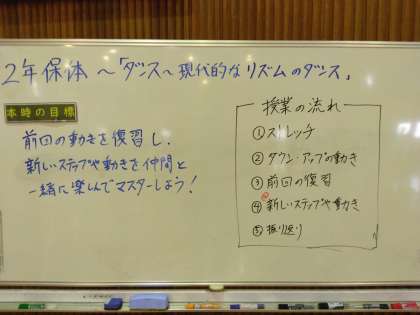 2年保体 ～「ダンス～現代的なリズムのダンス」
本時の目標
前回の動きを復習し、
新しいステップや動きを仲間と
一緒に楽しんでマスターしよう！
授業の流れ
①ストレッチ
②ダウン・アップの動き
③前回の復習
④新しいステップや動き
⑤振り返り